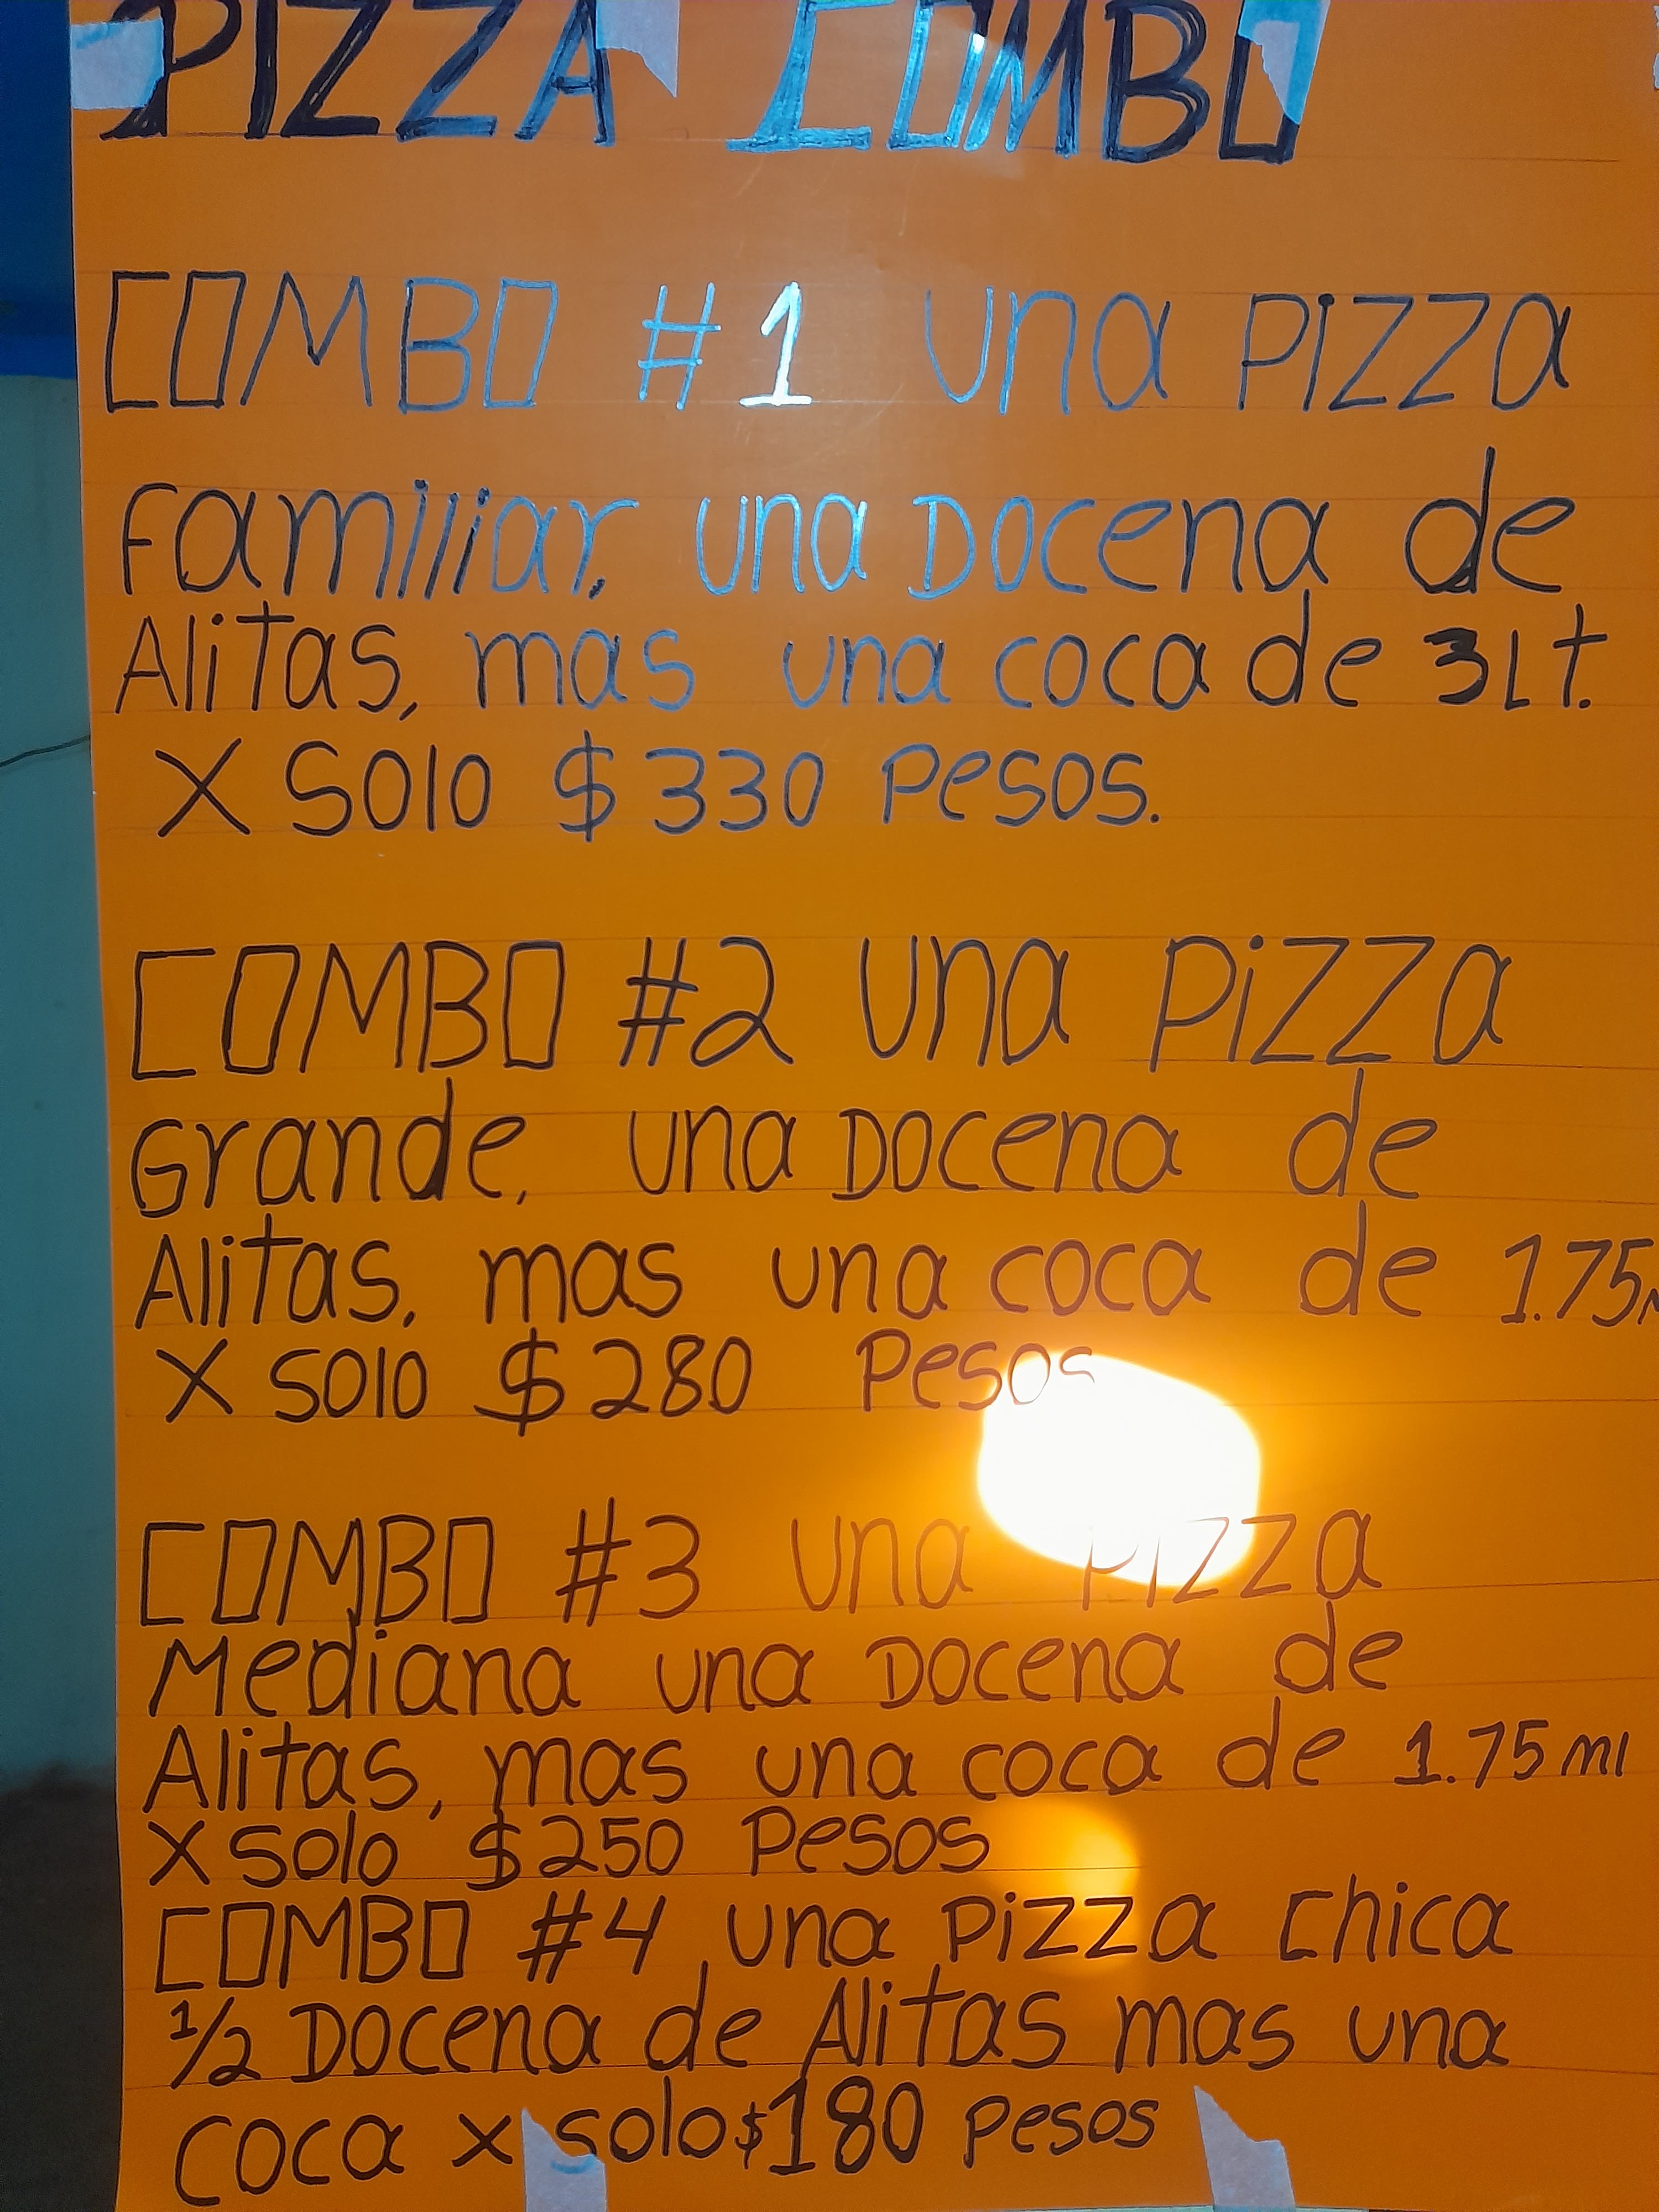 PIZZA COMBO
COMBO #1 una PizzA
Familiar, una Docena de
Alitas, mas una coca de 3Lt.
X Solo $330 Pesos.
COMBO #2 una PizzA
Grande, una Docena de
Alitas, mas una coca de 1.75
X Solo $280 Pesos
COMBO #3 una PizzA
Mediana una Docena de
Alitas, mas una coca de 1.75 ml
X Solo $250 Pesos
COMBO #4, una Pizza Chica
1/2 Docena de Alitas mas una
coca x solo $180 Pesos